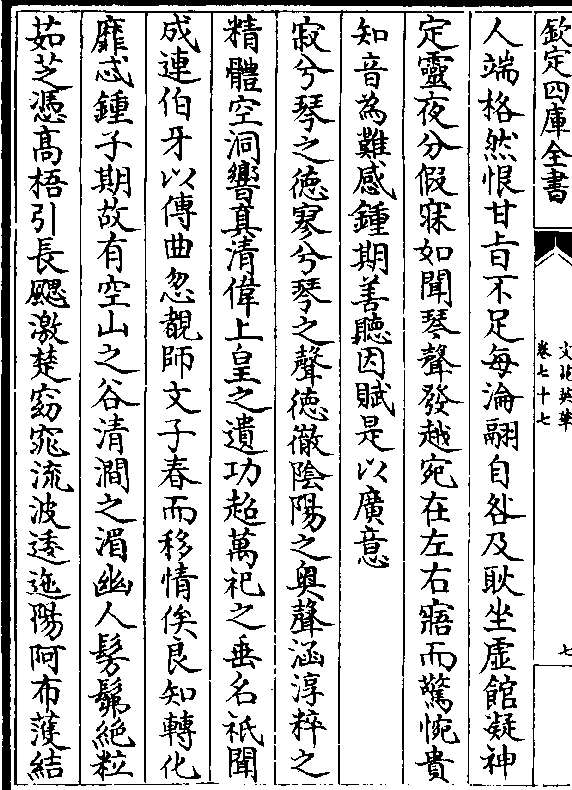 欽定四庫全書
文苑英華
卷七十七
七
人端格然恨甘旨不足每淪翮自咎及耿坐虛館凝神
定靈夜分假寐如聞琴聲發越宛在左右寤而驚惋貴
知音為難感鍾期善聽因賦是以廣意
寂兮琴之德寥兮琴之聲德徹陰陽之奥聲涵淳粹之
精體空洞響真清偉上皇之遺功超萬祀之垂名祇聞
成連伯牙以傳曲忽覩師文子春而移情俟良知轉化
靡忒鍾子期故有空山之谷清澗之湄幽人髣髴絶粒
茹芝憑髙梧引長颸激楚窈窕流波逶迤陽阿布濩結